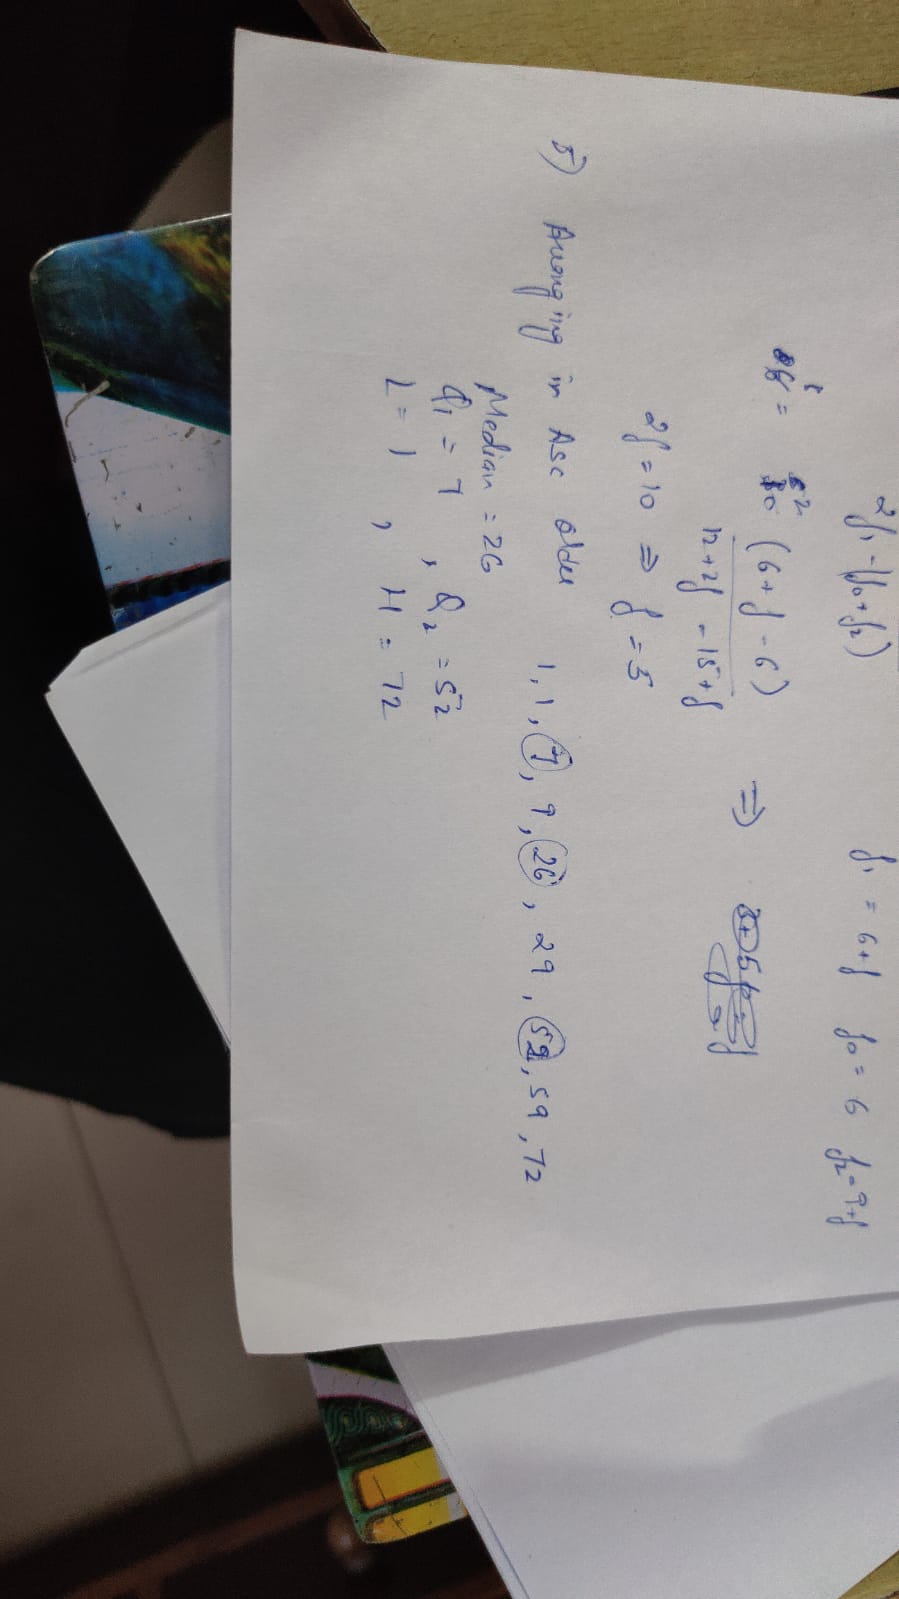 2f₁ - (f₀ + f₂)
f₁ = 6+f f₀ = 6 f₂ = 9+f
(6+f-6) ⇒
12+2f - 15+f
2f = 10 ⇒ f = 5
5) Arranging in Asc order 1, 1, 7, 9, 26, 29, 52, 59, 72
Median = 26
Q₁ = 7 , Q₂ = 52
L = 1 , H = 72